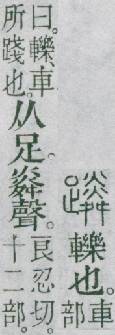 蹸 轢也。車部
曰。轢、車所踐也。从足。㷠聲。良忍切。十二部。